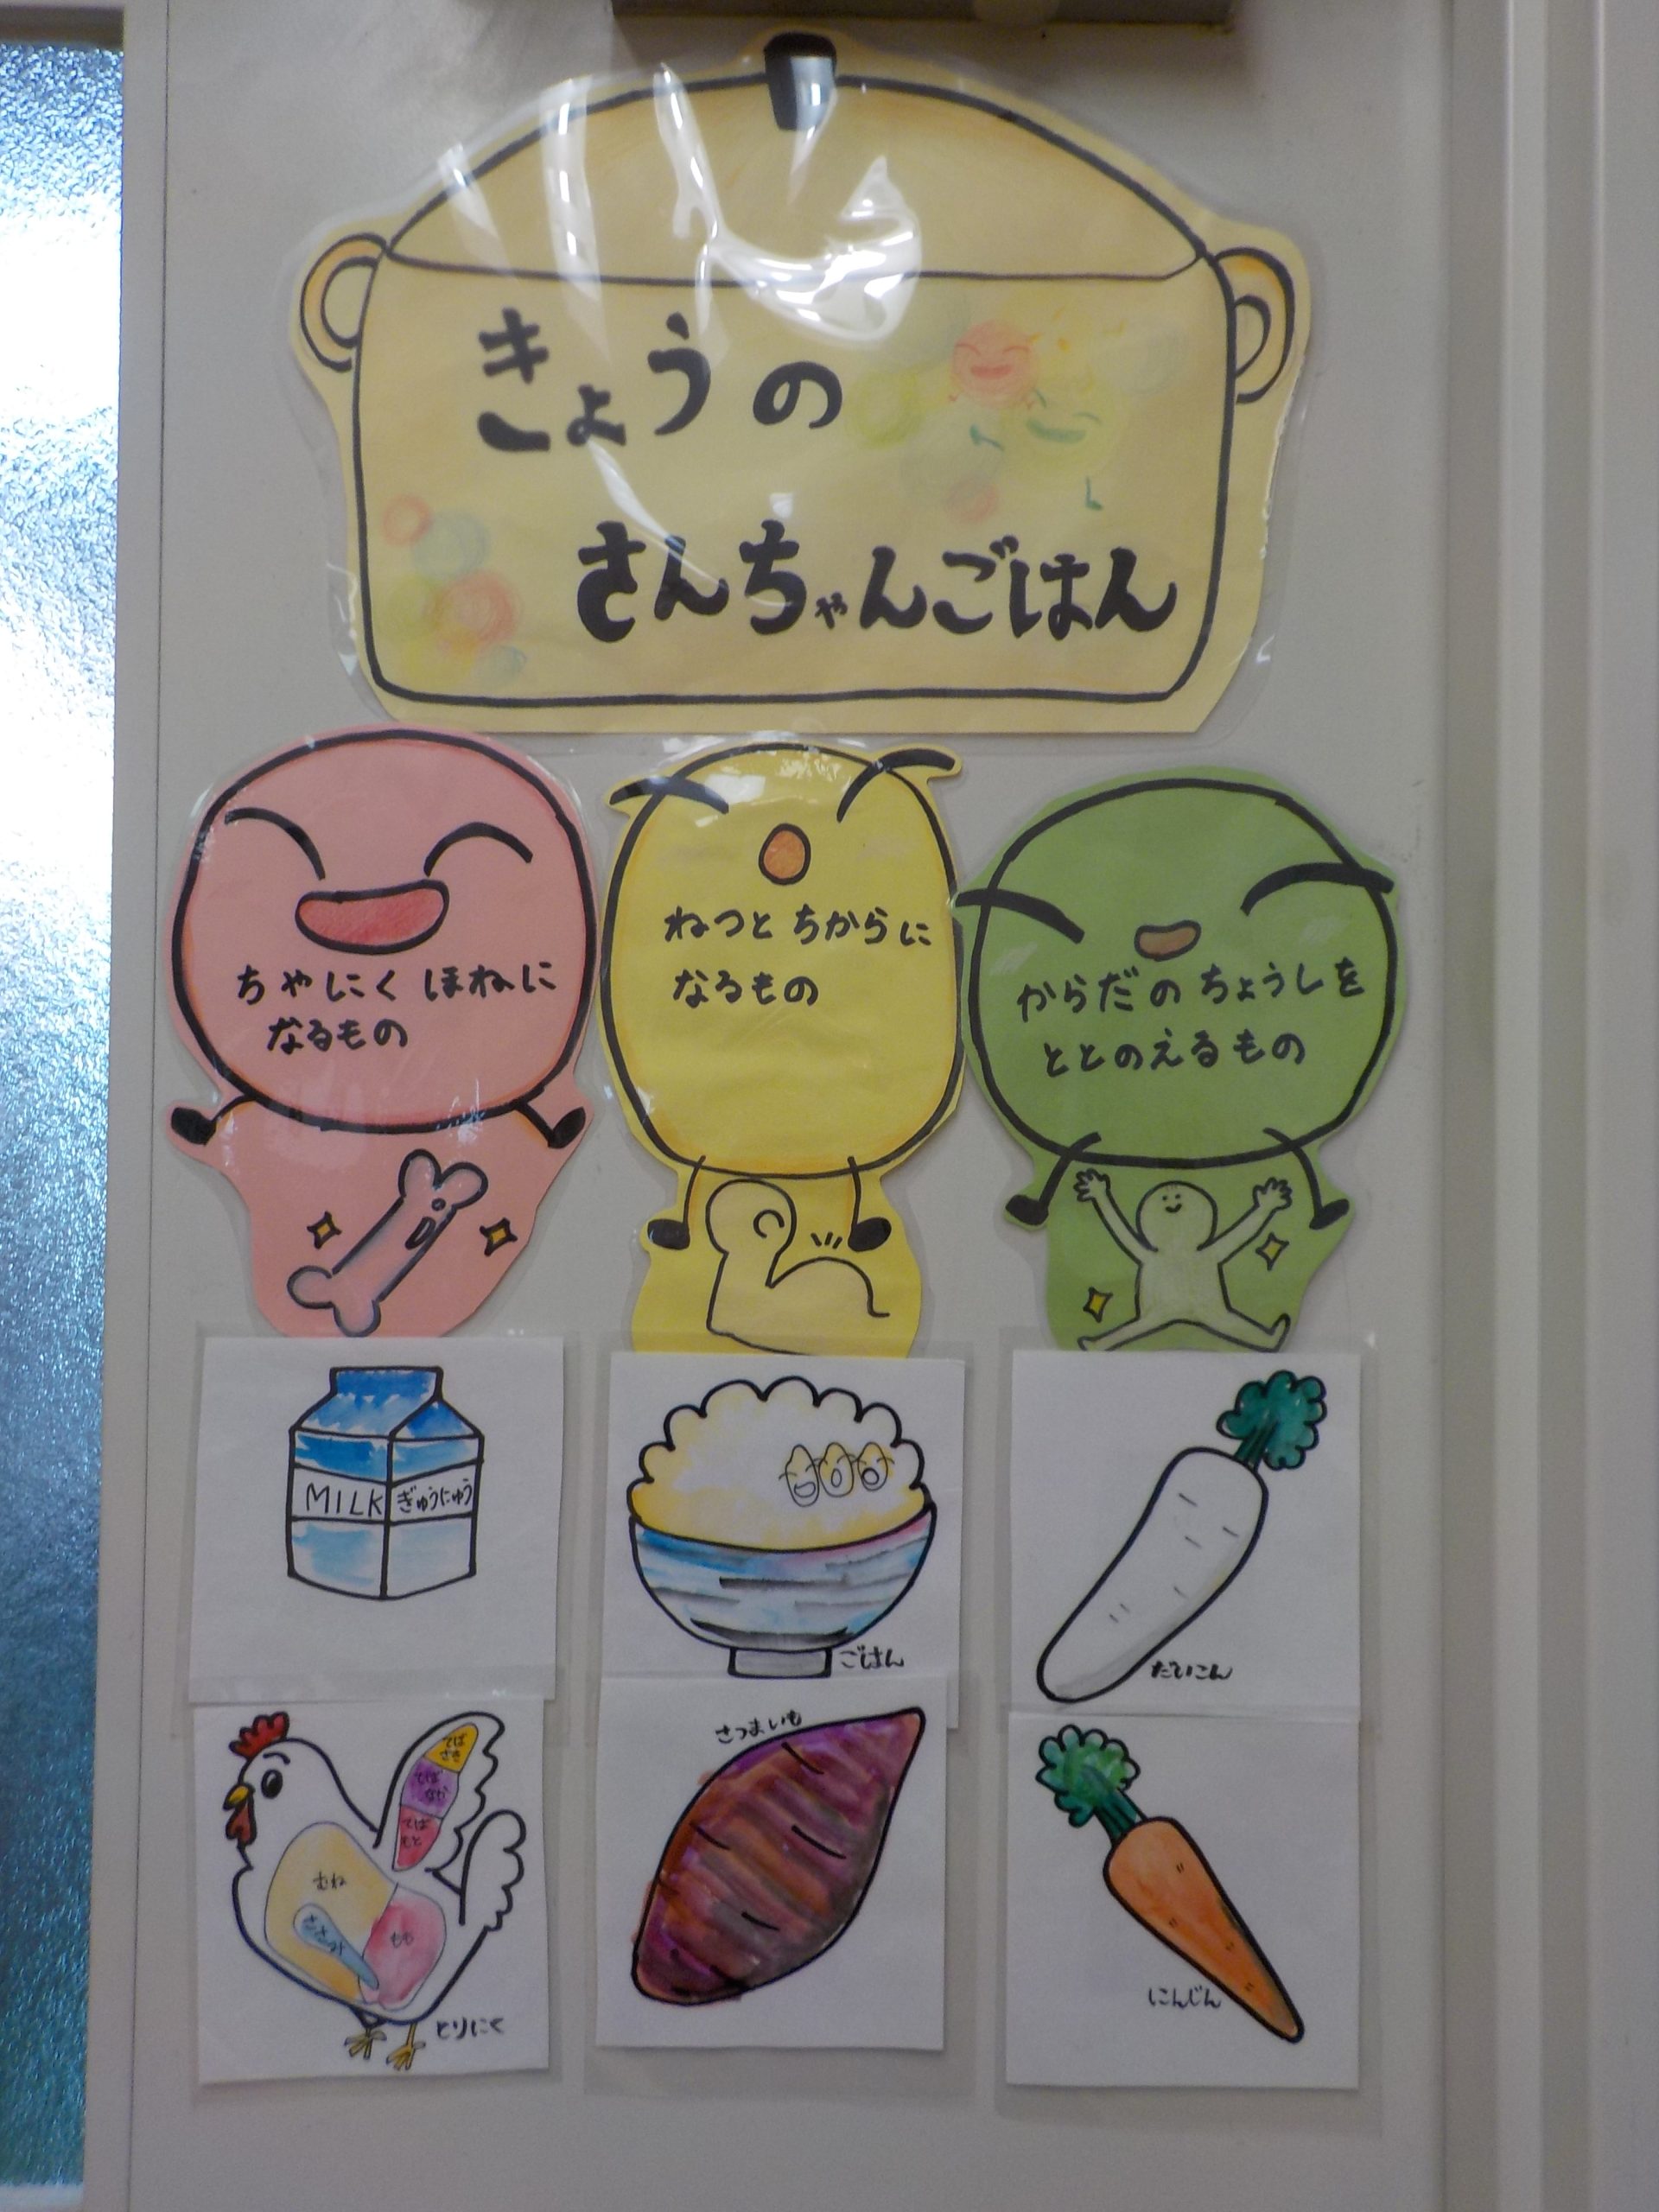 きょうの
さんちゃんごはん
ちやにく ほねに
なるもの
ねつと ちからに
なるもの
からだの ちょうしを
ととのえるもの
MILK ぎゅうにゅう
ごはん
だいこん
てば
さき
てば
なか
てば
もと
むね
ささみ
もも
とりにく
さつまいも
にんじん